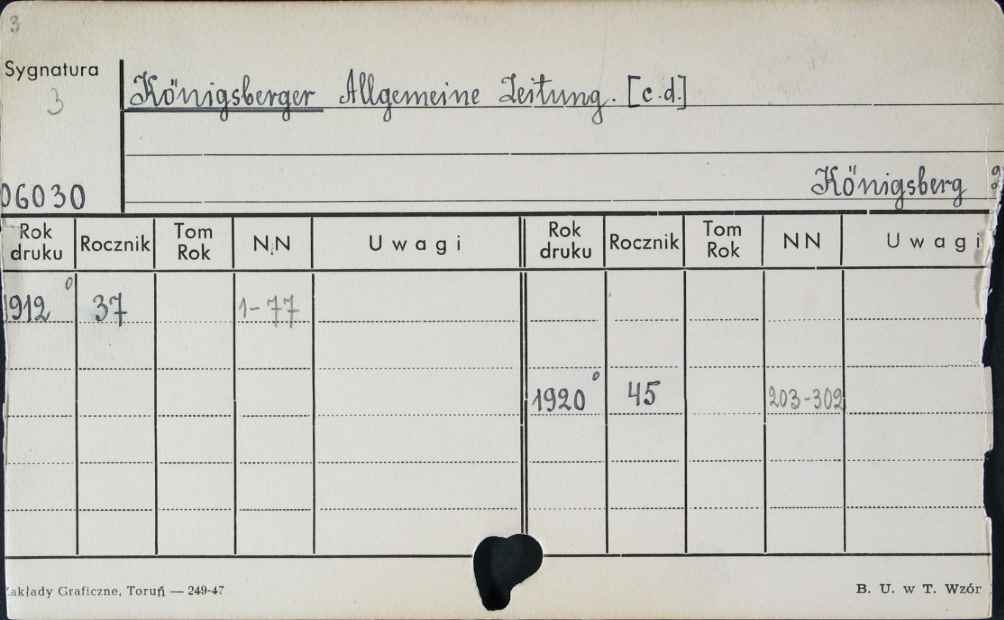 3
Sygnatura
3
Königsberger Allgemeine Zeitung. [c.d.]
Königsberg
06030
Rok druku Rocznik Tom Rok NN Uwagi Rok druku Rocznik Tom Rok NN Uwagi
1912° 37 1-77
1920° 45 203-302
Zakłady Graficzne, Toruń — 249-47
B. U. w T. Wzór